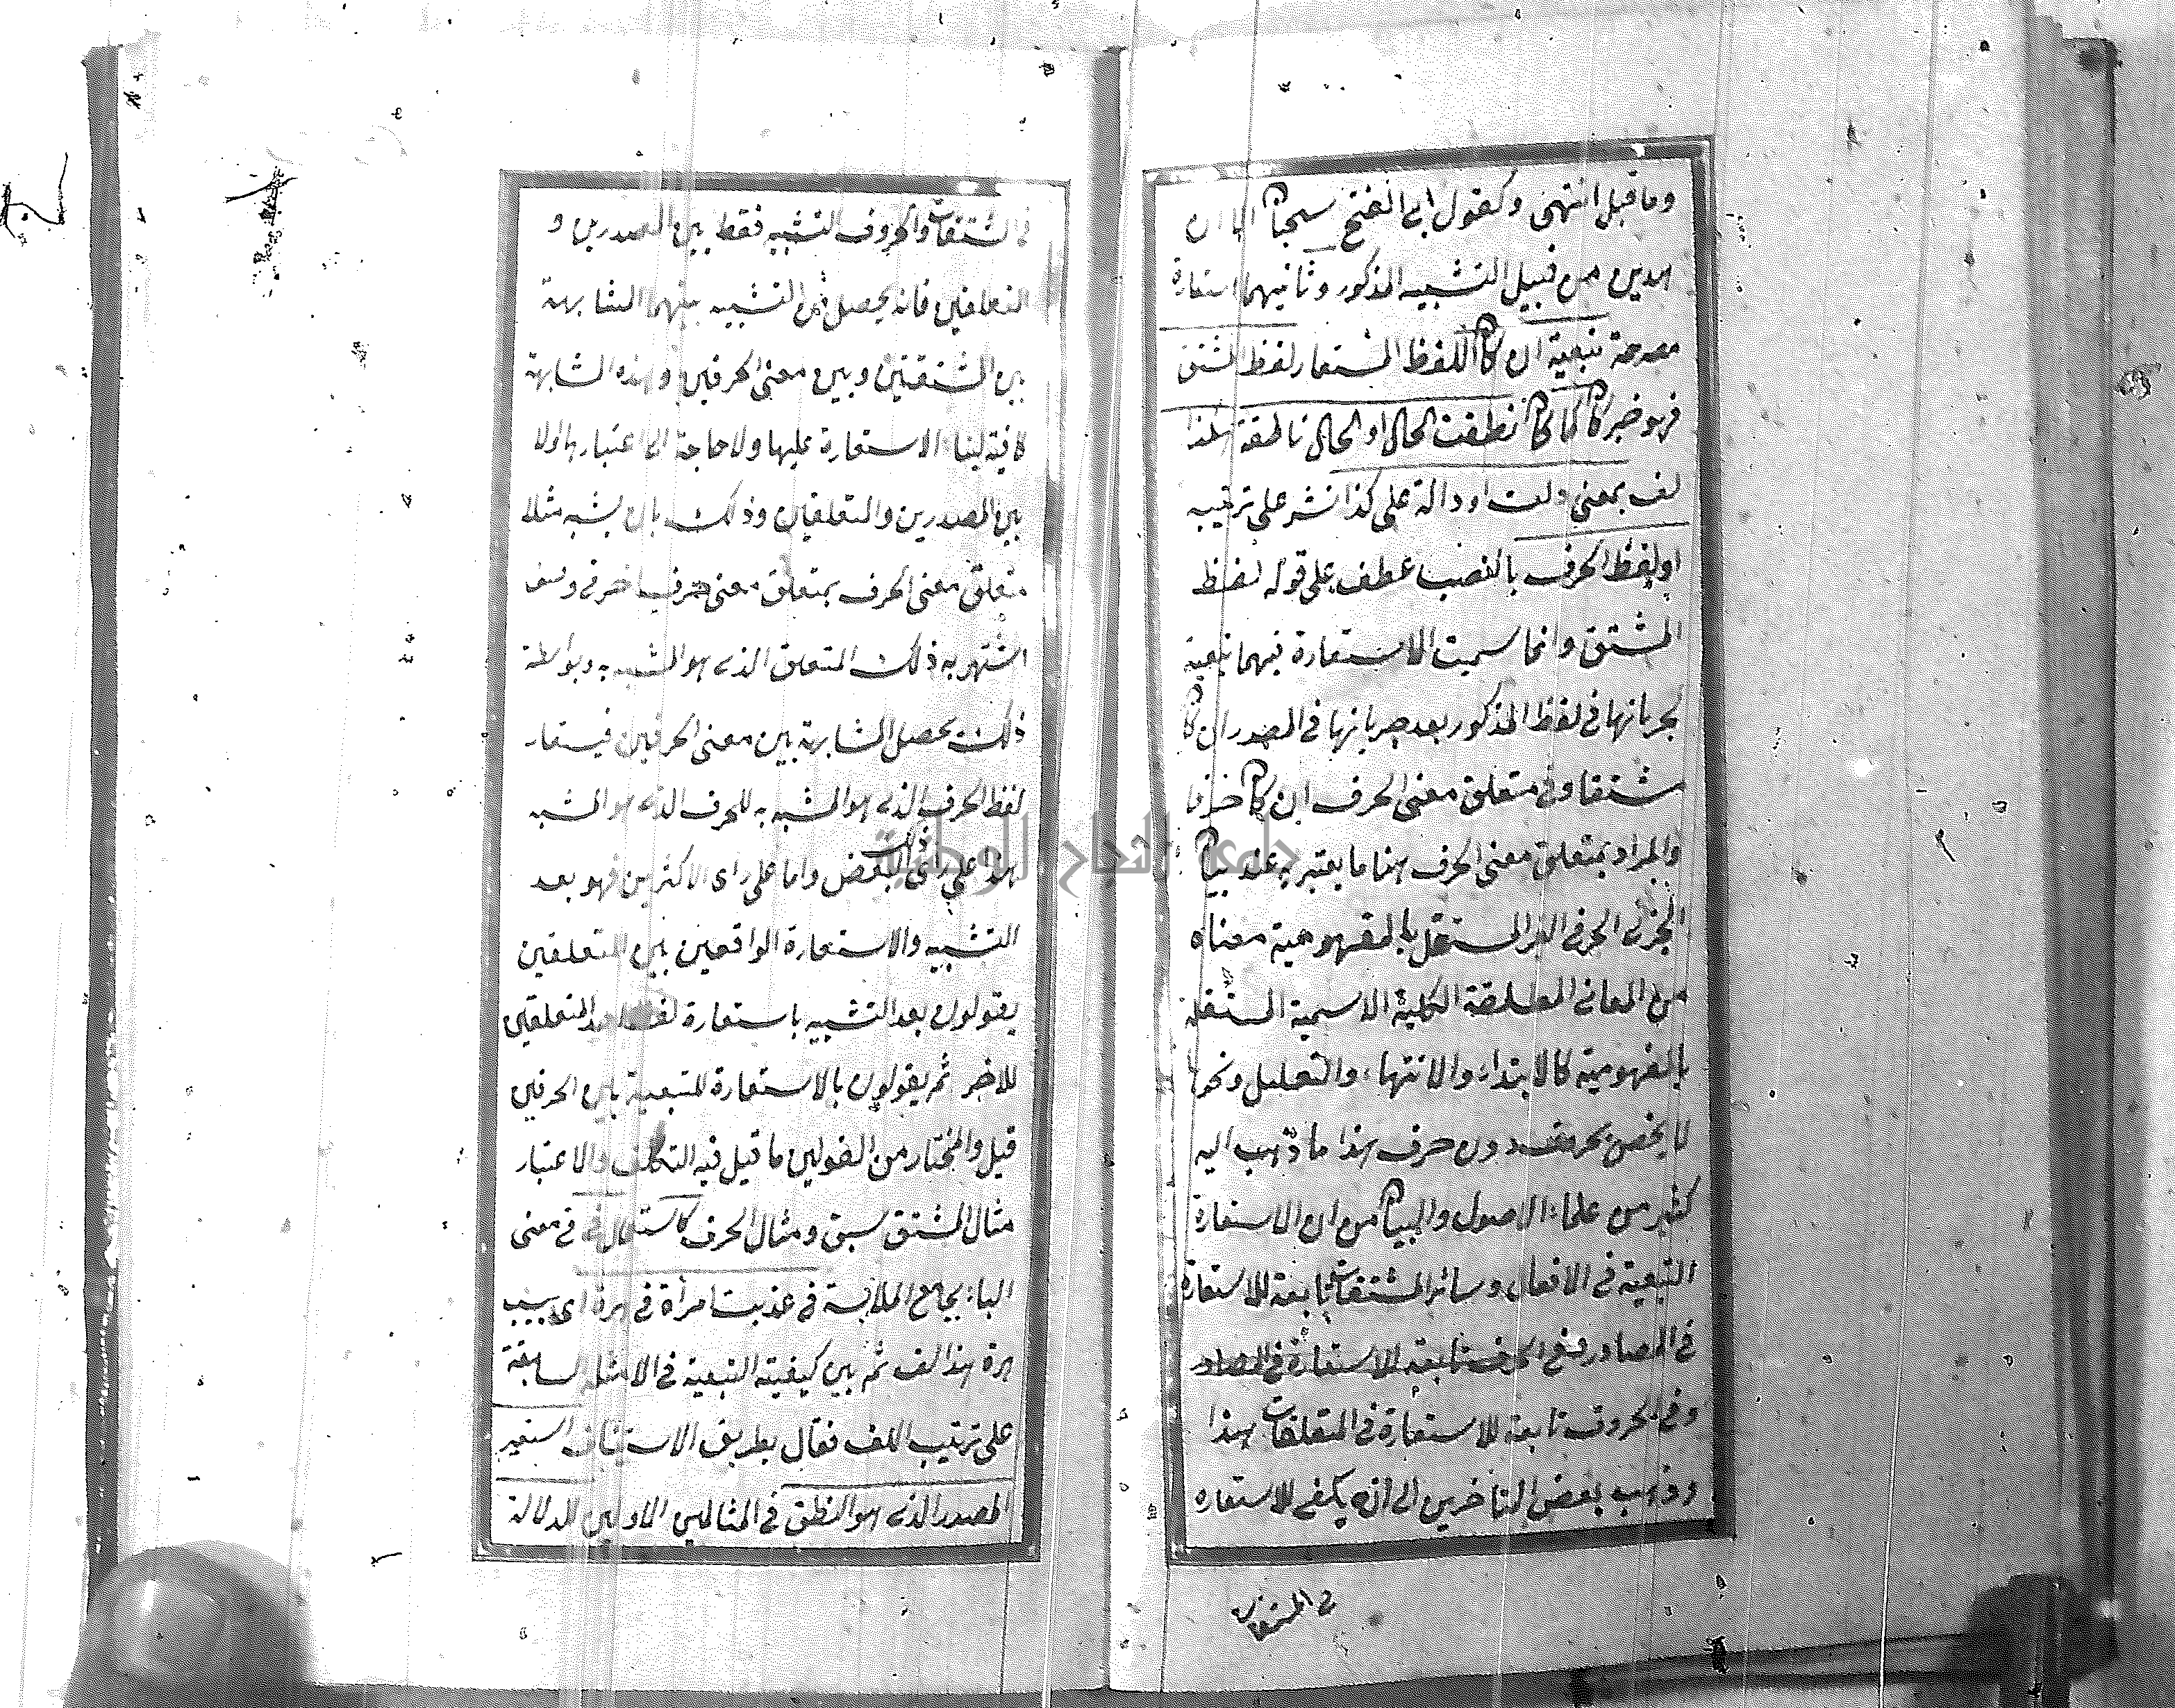 وما قبل انتهى وكقول ابى الفتح سبحا
الدين من قبيل التشبيه المذكور وثانيهما استعارة
مصرحة تبعية ان كا اللفظ المستعار لفظ المشتق
فهو خبر كا كما كا نطقت الحال او الحال ناطقة لهذا
لف بمعنى دلت او دالة على كذا نشر على ترتيبه
او لفظ الحرف بالنصب عطف على قوله لفظ
المشتق وانما سميت الاستعارة فيهما تبعية
لجريانها فى لفظ المذكور بعد جريانها فى المصدر ان كا
مشتقا وفى متعلق معنى الحرف ان كا حرفا
والمراد بمتعلق معنى الحرف هنا ما يعتبر به عند بيا
الجزئى الحرفى الغير المستقل بالمفهومية معناه
من المعانى المطلقة الكلية الاسمية المستقلة
بالمفهومية كالابتداء والانتهاء والتعليل ونحوها
لا يختص بحرف دون حرف هذا ما ذهب اليه
كثير من علماء الاصول والبيا من ان الاستعارة
التبعية فى الافعال وسائر المشتقات تابعة للاستعارة
فى المصادر وفى الحرف تابعة للاستعارة فى المصادر
وفى الحروف تابعة للاستعارة فى المتعلقات هذا
وذهب بعض المتأخرين الى انه يكفى للاستعاره
فى المشتقات
فى المشتقات والحروف التشبيه فقط بين المصدرين و
المتعلقين فانه يحصل من التشبيه بينهما المشابهة
بين المشتقين وبين معنى الحرفين وهذه المشابهة
كافية لبناء الاستعارة عليها ولا حاجة الى اعتبارها اولا
بين المصدرين والمتعلقين وذلك بان يشبه مثلا
متعلق معنى الحرف بمتعلق معنى حرف اخر فى وصف
اشتهر به ذلك المتعلق الذى هو المشبه به وبواسطة
ذلك يحصل المشابهة بين معنى الحرفين فيستعار
لفظ الحرف الذى هو المشبه به للحرف الذى هو المشبه
هذا على رأى ذلك البعض واما على راى الاكثرين فهو بعد
التشبيه والاستعارة الواقعين بين المتعلقين
يقولون بعد التشبيه باستعارة لفظ احد المتعلقين
للاخر ثم يقولون بالاستعارة التبعية بين الحرفين
قيل والمختار من القولين ما قيل فيه التكلف والاعتبار
مثال المشتق سبق ومثال الحرف كاستعمال فى فى معنى
الباء بجامع الملابسة فى عذبت امرأة فى هرة اى بسبب
هرة هذا لف ثم بين كيفية التبعية فى الامثلة السابقة
على ترتيب اللف فقال بطريق الاستيناف استعير
المصدر الذى هو النطق فى المثالين الاولين للدلالة